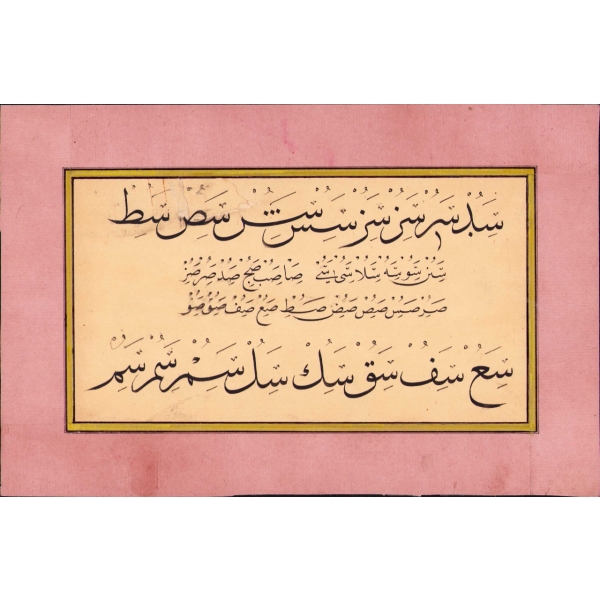 سبد سر سر سس سس سص سط
سن سو سه سلا سى صا صب صج صد صر صر
صر صس صص صض صط صع صف صو صو
سع سف سق سك سل سم سم سم